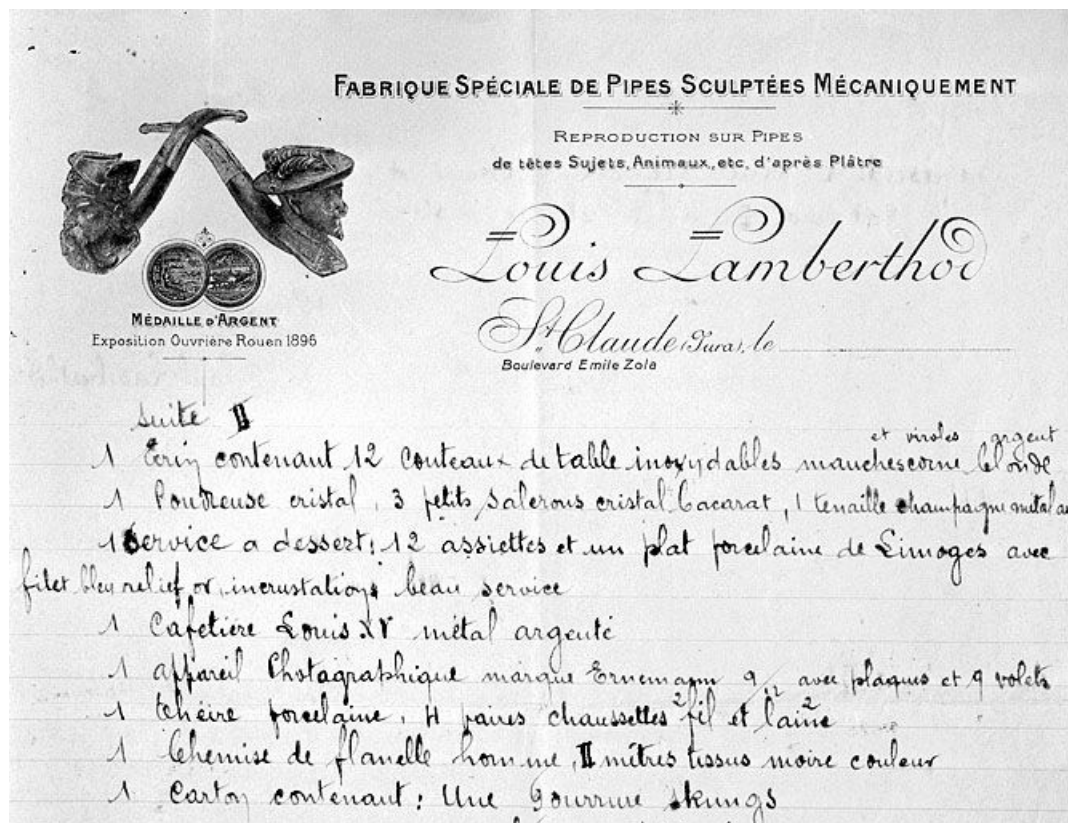 FABRIQUE SPÉCIALE DE PIPES SCULPTÉES MÉCANIQUEMENT
REPRODUCTION SUR PIPES
de têtes Sujets, Animaux, etc, d'après Plâtre
Louis Lamberthod
St Claude (Jura), le
Boulevard Emile Zola
MÉDAILLE D'ARGENT
Exposition Ouvrière Rouen 1896
suite II
et viroles argent
1 Ecrin contenant 12 Couteaux de table inoxydables manches corne blonde
1 Poudreuse cristal, 3 petits salerons cristal Bacarat, 1 tenaille champagne métal
1 Service a dessert: 12 assiettes et un plat porcelaine de Limoges avec
filet bleu relief or, incrustations beau service
1 Cafetière Louis XV métal argenté
1 appareil Photagraphique marque Ernemann 9/12 avec plaques et 9 volets
1 théire porcelaine, 4 paires chaussettes 2 fil et 2 laine
1 Chemise de flanelle homme, II mètres tissus moire couleur
1 Carton contenant: Une gourrure skungs